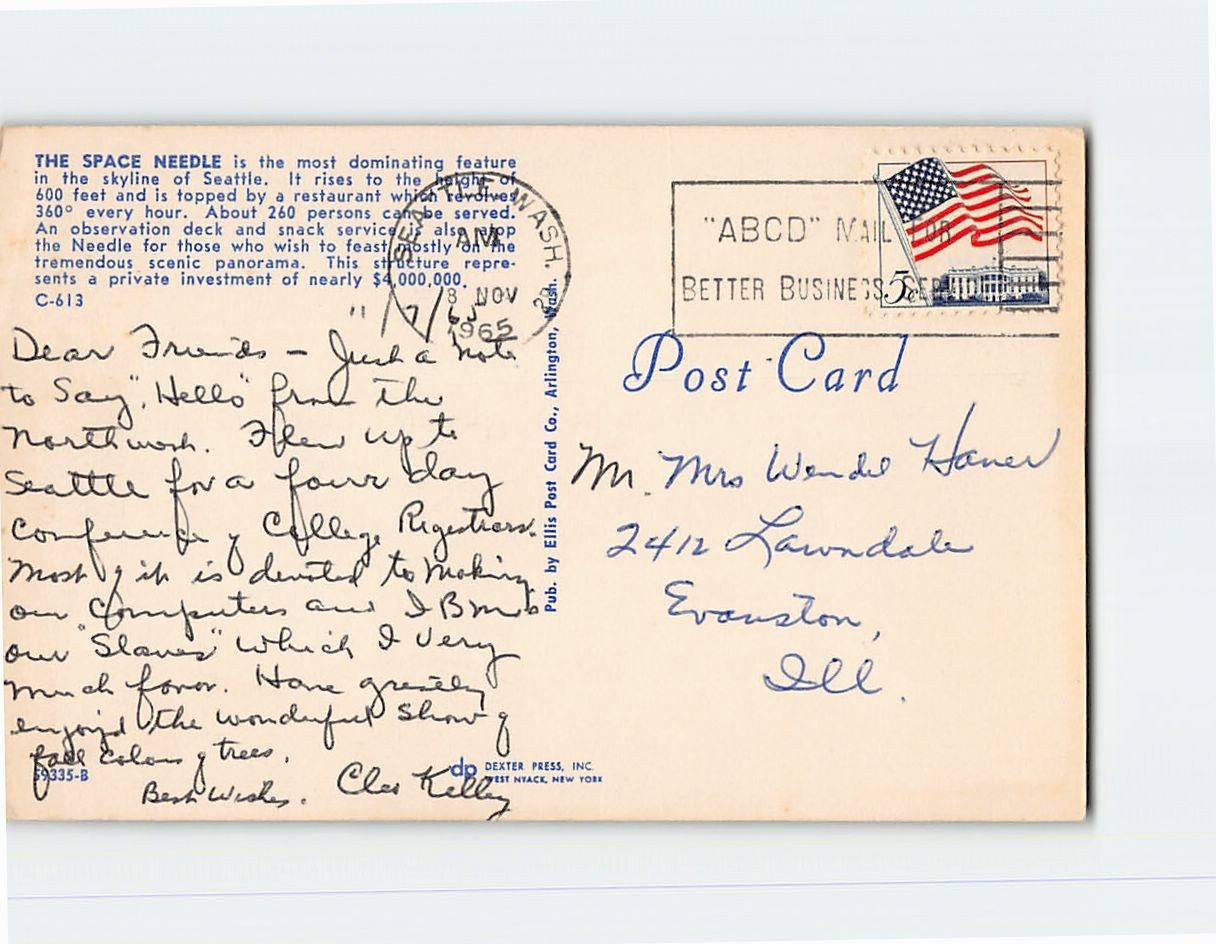 THE SPACE NEEDLE is the most dominating feature
in the skyline of Seattle. It rises to the height of
600 feet and is topped by a restaurant which revolves
360° every hour. About 260 persons can be served.
An observation deck and snack service is also atop
the Needle for those who wish to feast mostly on the
tremendous scenic panorama. This structure repre-
sents a private investment of nearly $4,000,000.
C-613
SEATTLE, WASH.
AM
8 NOV
1965
"ABCD" MAIL FOR
BETTER BUSINESS
5c
11/7/65
Dear Friends – Just a note
to Say, "Hello" from the
northwest. Flew up to
Seattle for a four day
Conference of College Registrars.
Most of it is devoted to making
our Computers and IBM's
our "Slaves" which I very
much favor. Have greatly
enjoyed the wonderful show of
fall colors of trees.
Best Wishes. Kelley
59335-B
Pub. by Ellis Post Card Co., Arlington, Wash.
dp DEXTER PRESS, INC.
WEST NYACK, NEW YORK
Post Card
Mr. Mrs Wendel
2412 Lawndale
Evanston,
Ill.